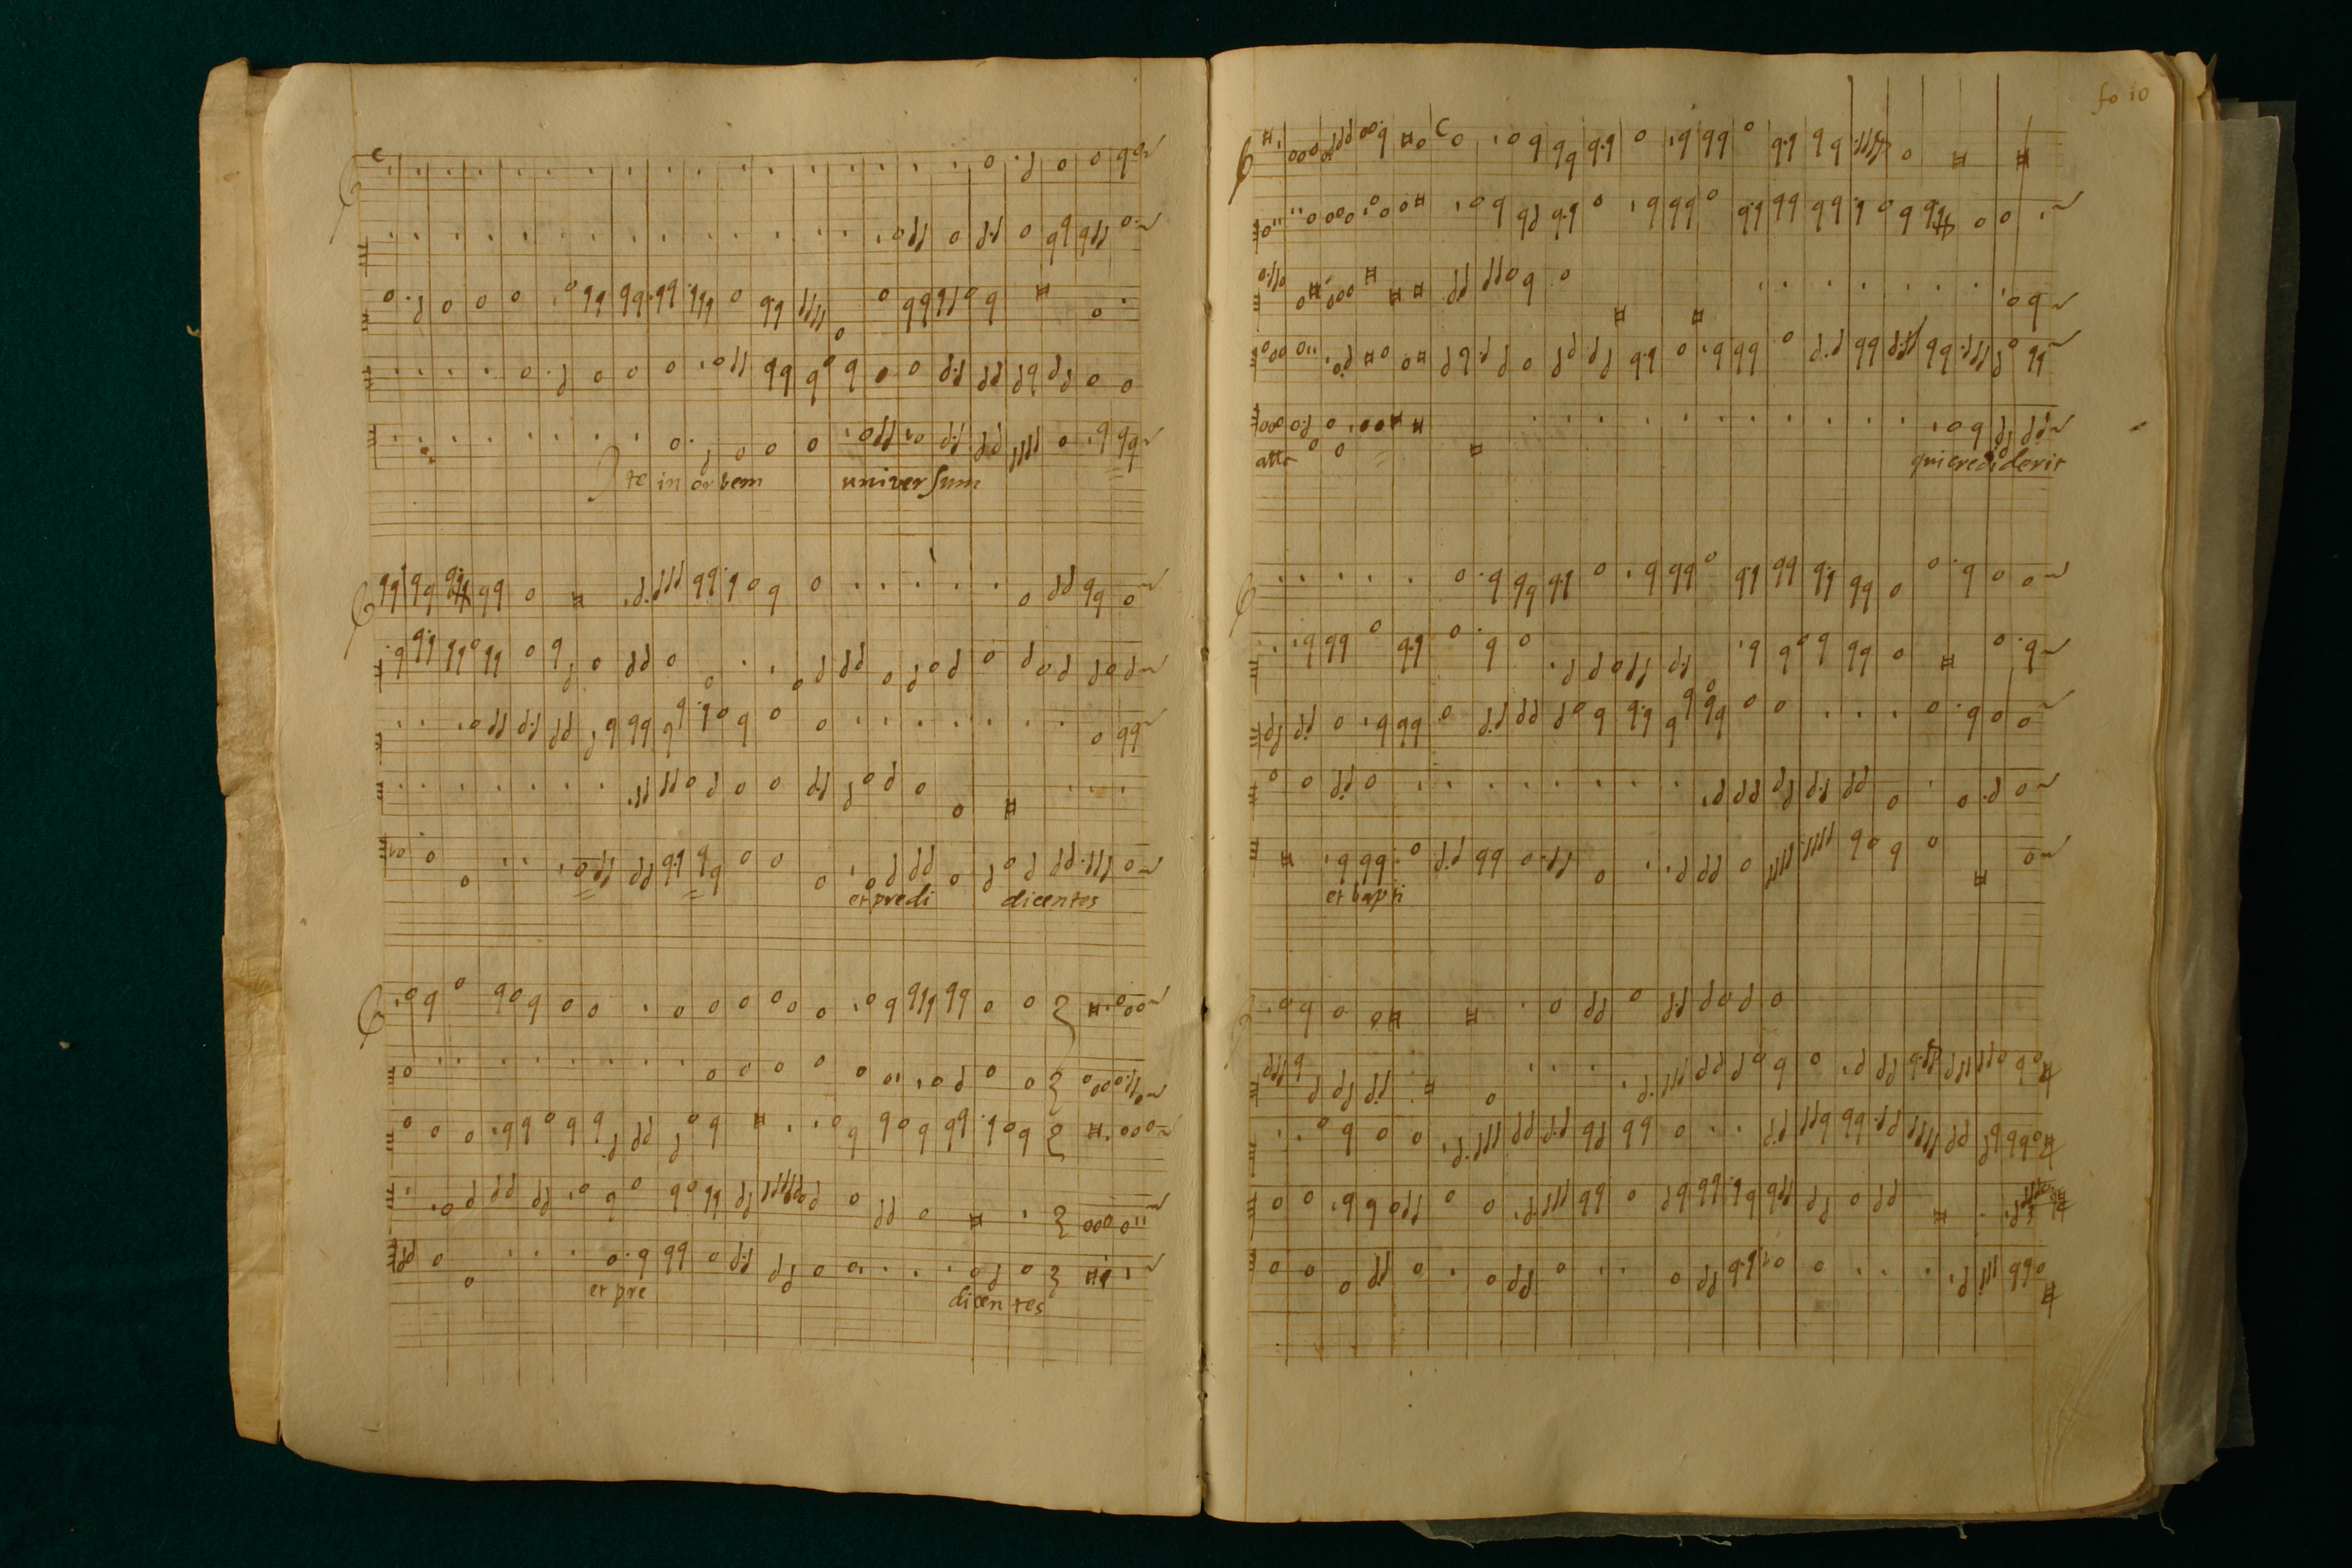 Ite in orbem universum
et predi dicentes
et pre dicentes
fo 10
alla
qui crediderit
et bapti